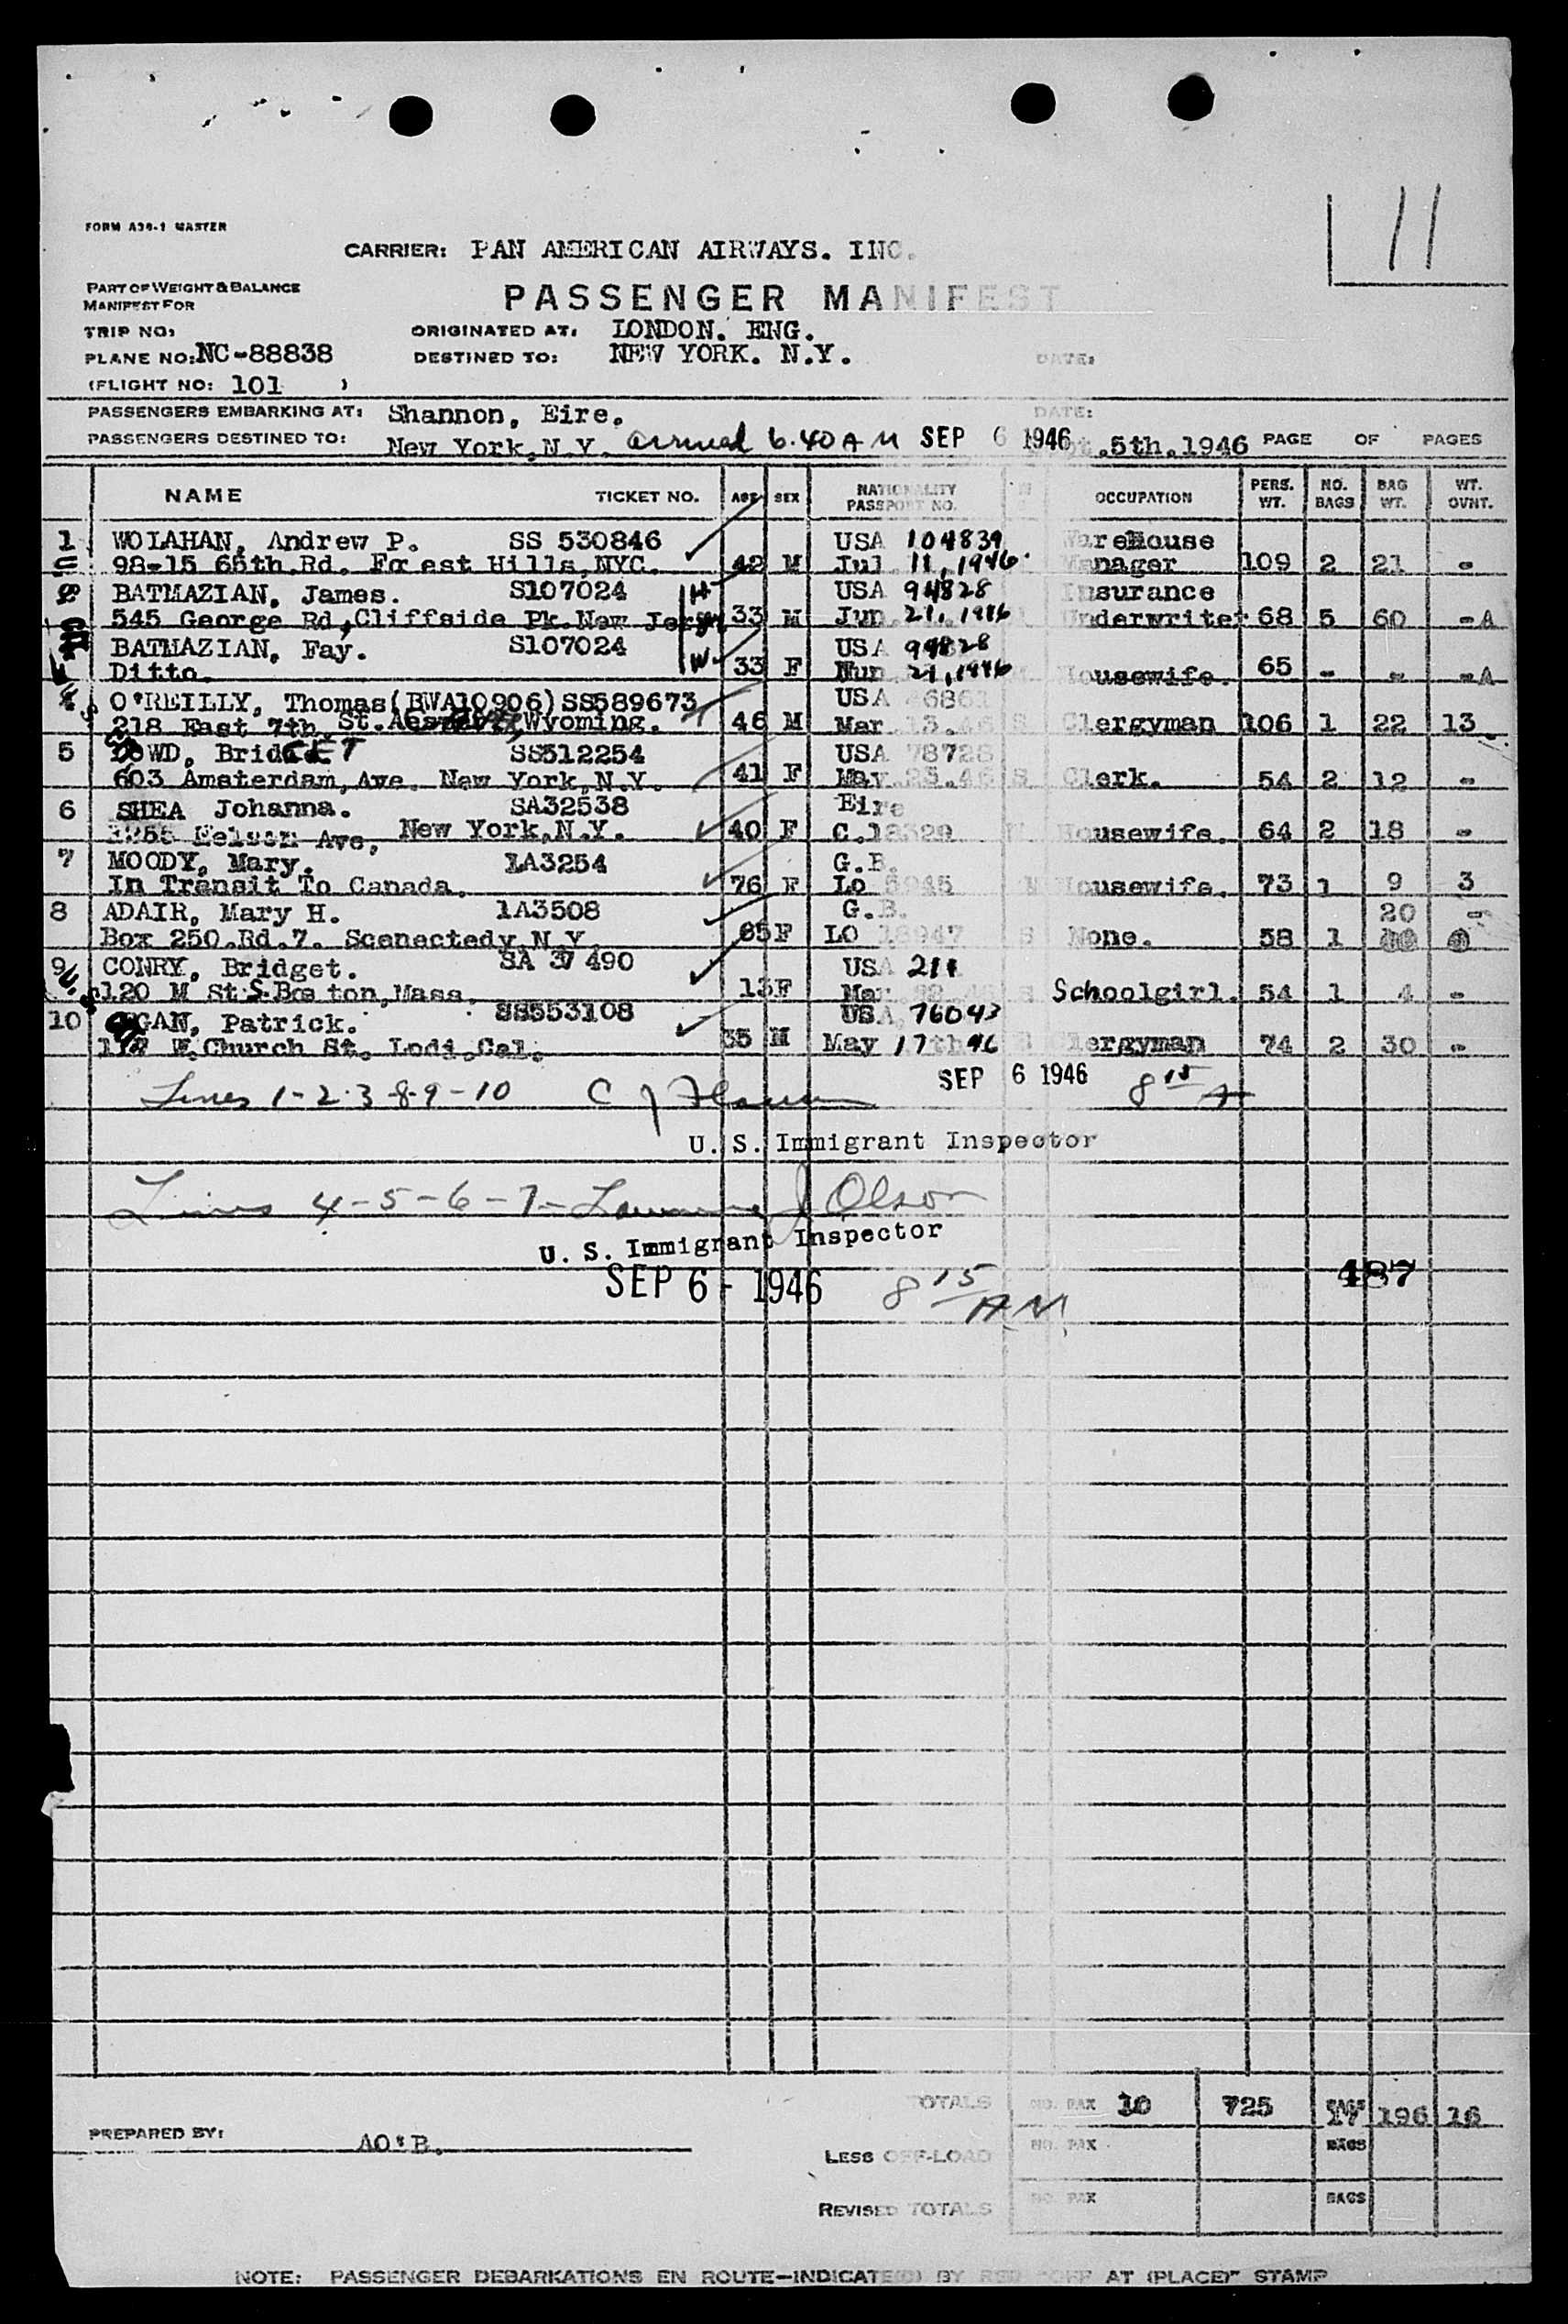 11
FORM A30-1 MASTER
CARRIER: PAN AMERICAN AIRWAYS. INC.
PART OF WEIGHT & BALANCE
MANIFEST FOR
PASSENGER MANIFEST
TRIP NO: ORIGINATED AT: LONDON. ENG.
PLANE NO: NC-88838 DESTINED TO: NEW YORK. N.Y. DATE:
(FLIGHT NO: 101 )
PASSENGERS EMBARKING AT: Shannon, Eire. DATE:
PASSENGERS DESTINED TO: New York, N.Y. arrived 6.40 AM SEP 6 1946 .5th.1946 PAGE OF PAGES
NAME TICKET NO. AGE SEX NATIONALITY PASSPORT NO. OCCUPATION PERS. WT. NO. BAGS BAG WT. WT. OVNT.
1 WOLAHAN, Andrew P. SS 530846 USA 104839 WareHouse
98-15 65th.Rd. Forest Hills, NYC. 42 M Jul. 11, 1946 Manager 109 2 21 -
BATMAZIAN, James. S107024 H USA 94828 Insurance
545 George Rd, Cliffside Pk. New Jersey 33 M Jun. 21, 1946 Underwriter 68 5 60 -A
BATMAZIAN, Fay. S107024 W USA 94828
Ditto. 33 F 21, 1946 Housewife. 65 - - -A
O'REILLY, Thomas (BWA10906) SS589673 USA 46861
218 East 7th, St. Wyoming. 46 M Mar. 13.46 S Clergyman 106 1 22 13
5 DOWD, BridGET SS512254 USA 78728
603 Amsterdam, Ave. New York, N.Y. 41 F May 23.46 S Clerk. 54 2 12 -
6 SHEA Johanna. SA32538 Eire
Nelson Ave, New York, N.Y. 40 F C.18329 Housewife. 64 2 18 -
7 MOODY, Mary. LA3254 G.B.
In Transit To Canada. 76 F Lo 5945 Housewife. 73 1 9 3
8 ADAIR, Mary H. 1A3508 G.B. 20 -
Box 250.Rd.7. Scenectedy, N.Y. 65 F LO 18947 S None. 58 1
9 CONRY, Bridget. SA 37490 USA 211
120 M St. S. Boston, Mass. 13 F Mar. 46 S Schoolgirl. 54 1 4 -
10 EGAN, Patrick. SS553108 USA, 76043
117 W. Church St. Lodi, Cal. 35 M May 17th 46 Clergyman 74 2 30 -
Lines 1-2-3-8-9-10 SEP 6 1946 8 15 A
U. S. Immigrant Inspector
Lines 4-5-6-7- Lawrence J Olson
U. S. Immigrant Inspector
SEP 6 - 1946 8 15 AM
487
TOTALS NO. PAX 10 725 BAGS 17 196 16
PREPARED BY: AO'B.
LESS OFF-LOAD NO. PAX BAGS
REVISED TOTALS NO. PAX BAGS
NOTE: PASSENGER DEBARKATIONS EN ROUTE-INDICATE(D) BY RED "OFF AT (PLACE)" STAMP